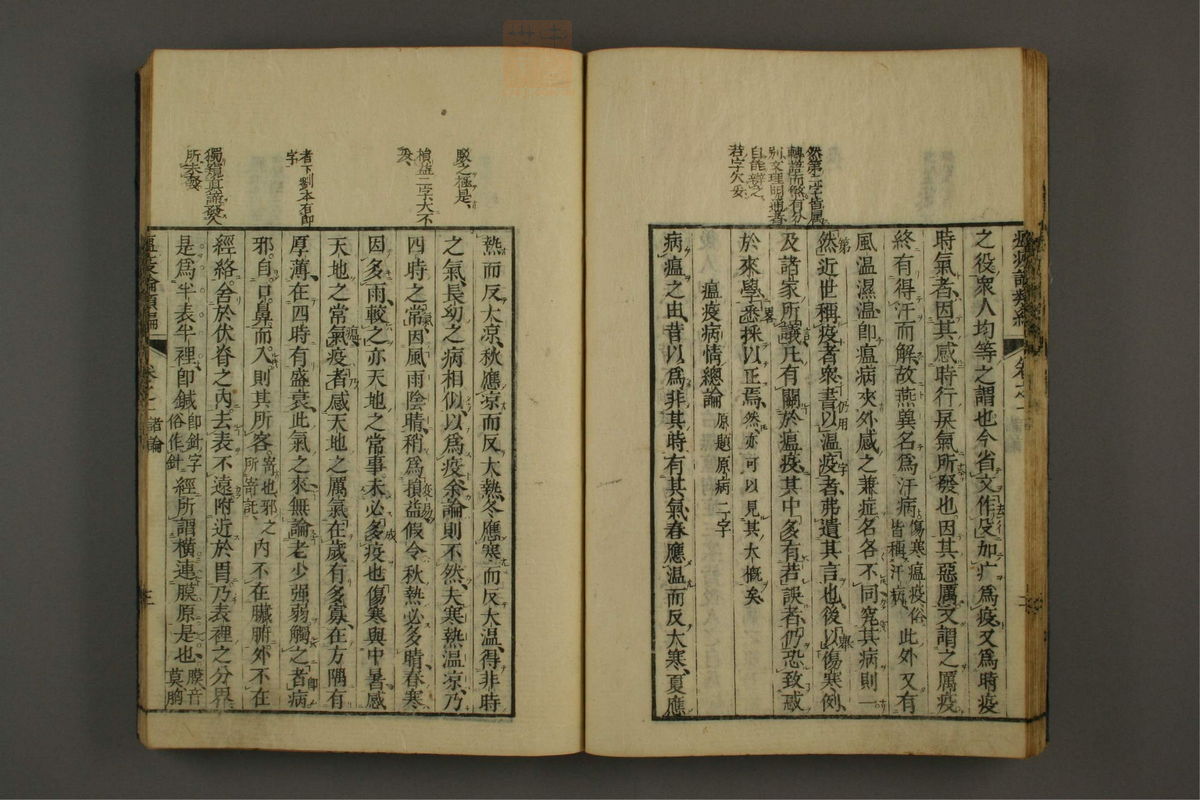 然第二字皆属
轉語而然有分
別文理明通者
自能辨之
若字欠妥
之役衆人均等之謂也今省文作殳加疒爲疫又爲時疫
時氣者因其感時行戾氣所發也因其惡厲又謂之厲疫
終有得汗而解故燕冀名爲汗病傷寒瘟疫俗皆稱汗病此外又有
風温濕温即瘟病夾外感之兼症名各不同究其病則一
然近世稱疫者衆書以温疫者弗遺其言也後以傷寒例
及諸家所議凡有關於瘟疫其中多有若誤者仍恐致惑
於來學悉採以正焉然亦可以見其大概矣
瘟疫病情總論原題原病二字
病瘟之由昔以爲非其時有其氣春應温而反大寒夏應
䝱之極是
損益二字大不
妥
者下劉本有即
字
獨窺眞諦發人
所未發
熱而反大凉秋應凉而反大熱冬應寒而反大温得非時
之氣長幼之病相似以爲疫余論則不然夫寒熱温凉乃
四時之常因風雨陰晴稍爲損益假令秋熱必多晴春寒
因多雨較之亦天地之常事未必多疫也傷寒與中暑感
天地之常氣疫者感天地之厲氣在歲有多寡在方隅有
厚薄在四時有盛衰此氣之來無論老少強弱觸之者病
邪自口鼻而入則其所客寄也邪所寄託之内不在臟腑外不在
經絡舍於伏脊之内去表不遠附近於胃乃表裡之分界
是爲半表半裡即鍼即針字俗作針經所謂横連膜原是也膜音莫胸